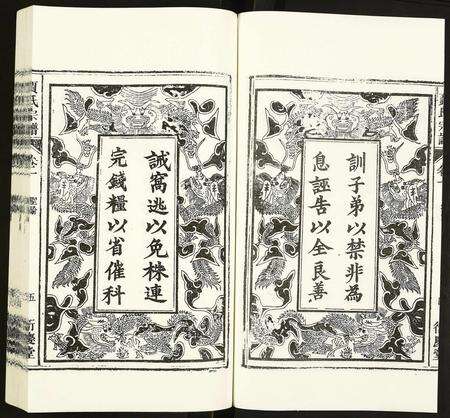 訓子弟以禁非為
息誣告以全良善
誡窩逃以免株連
完錢糧以省催科
氏宗譜
卷一
五